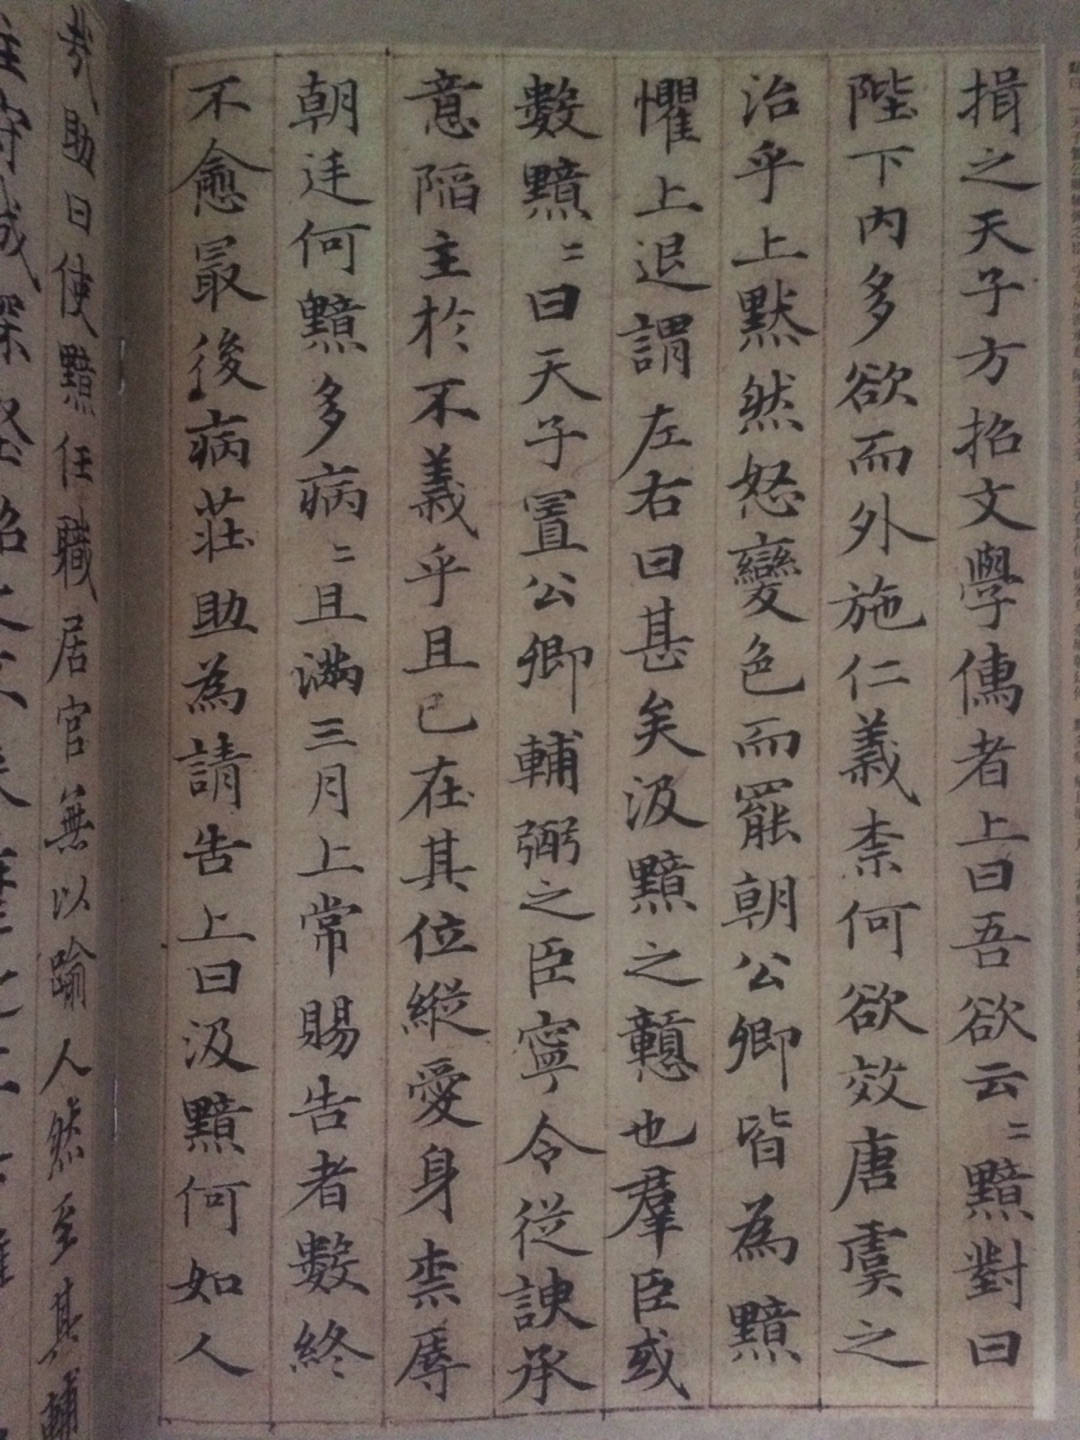 揖之天子方招文學儒者上曰吾欲云〻黯對曰
陛下內多欲而外施仁義柰何欲效唐虞之
治乎上默然怒變色而罷朝公卿皆為黯
懼上退謂左右曰甚矣汲黯之戇也羣臣或
數黯〻曰天子置公卿輔弼之臣寧令從諛承
意陷主於不義乎且已在其位縱愛身柰辱
朝廷何黯多病〻且滿三月上常賜告者數終
不愈最後病莊助為請告上曰汲黯何如人
哉助曰使黯任職居官無以踰人然至其輔